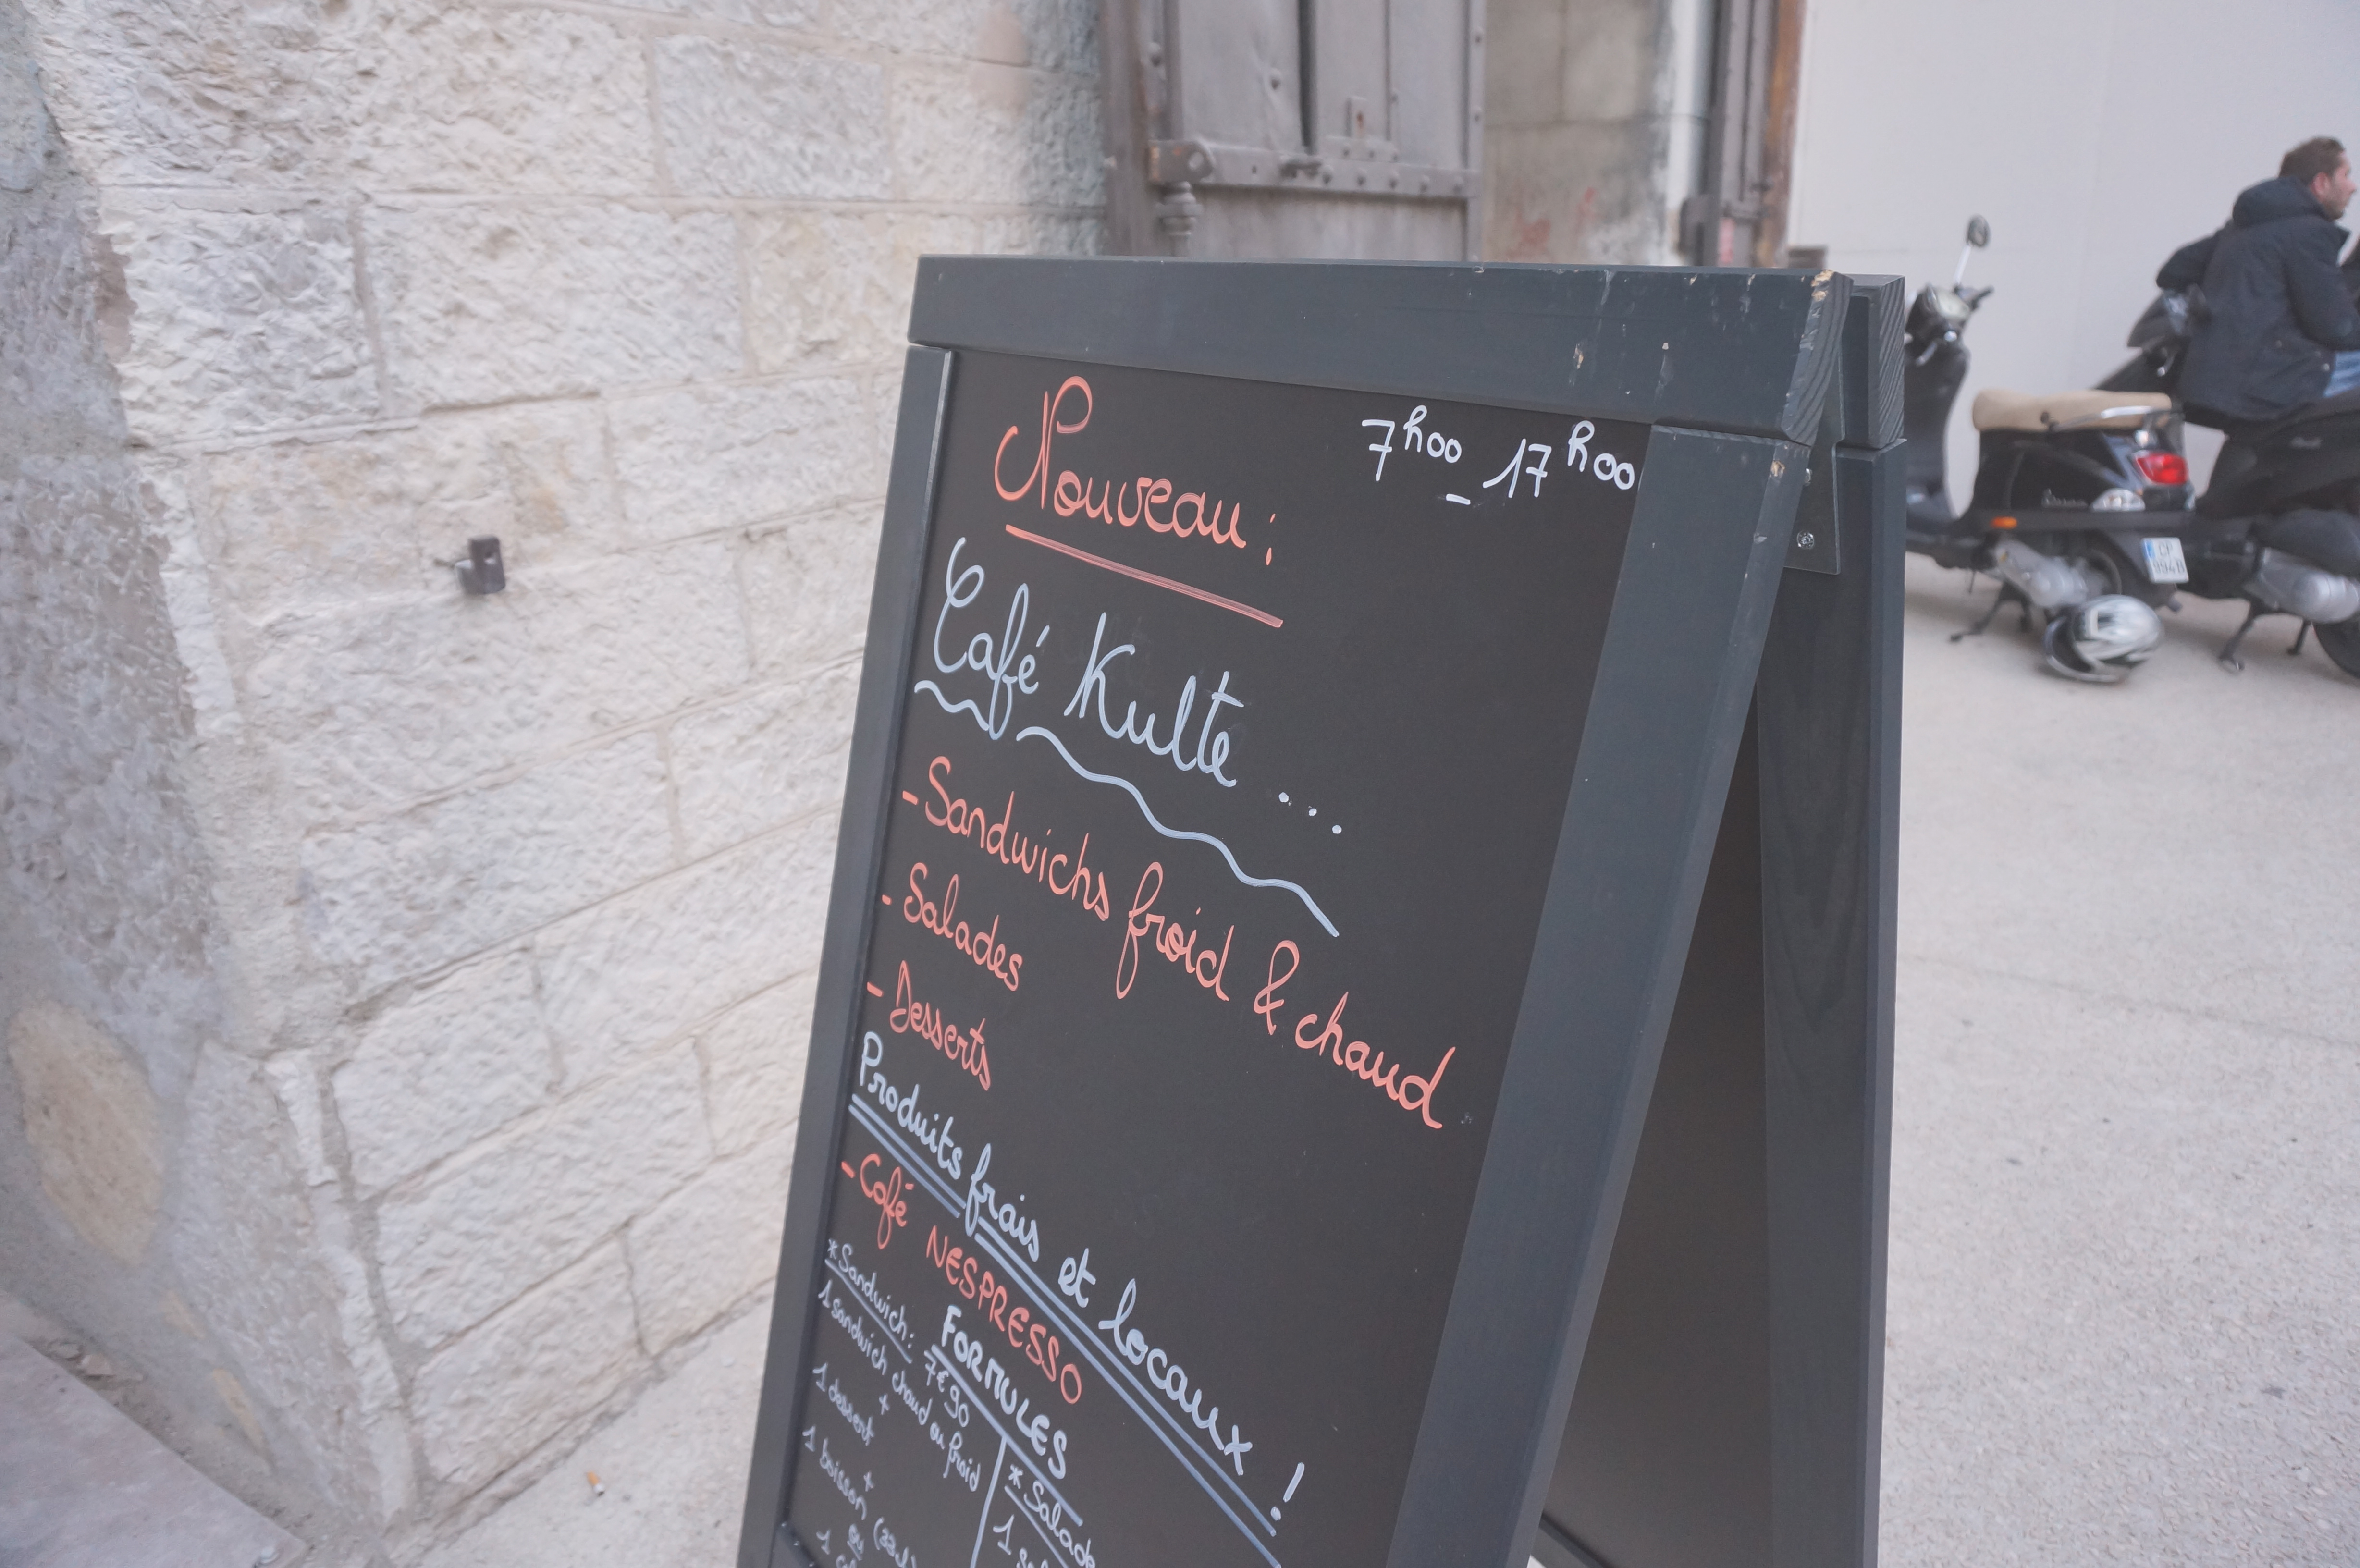 Nouveau :
7h00 - 17h00
Café Kulte ...
- Sandwichs froid & chaud
- Salades
- Desserts
Produits frais et locaux !
- Café NESPRESSO
FORMULES
* Sandwich : 7€90
1 sandwich chaud ou froid
+
1 dessert
+
1 boisson
ou
1
* Salade
1
Vespa